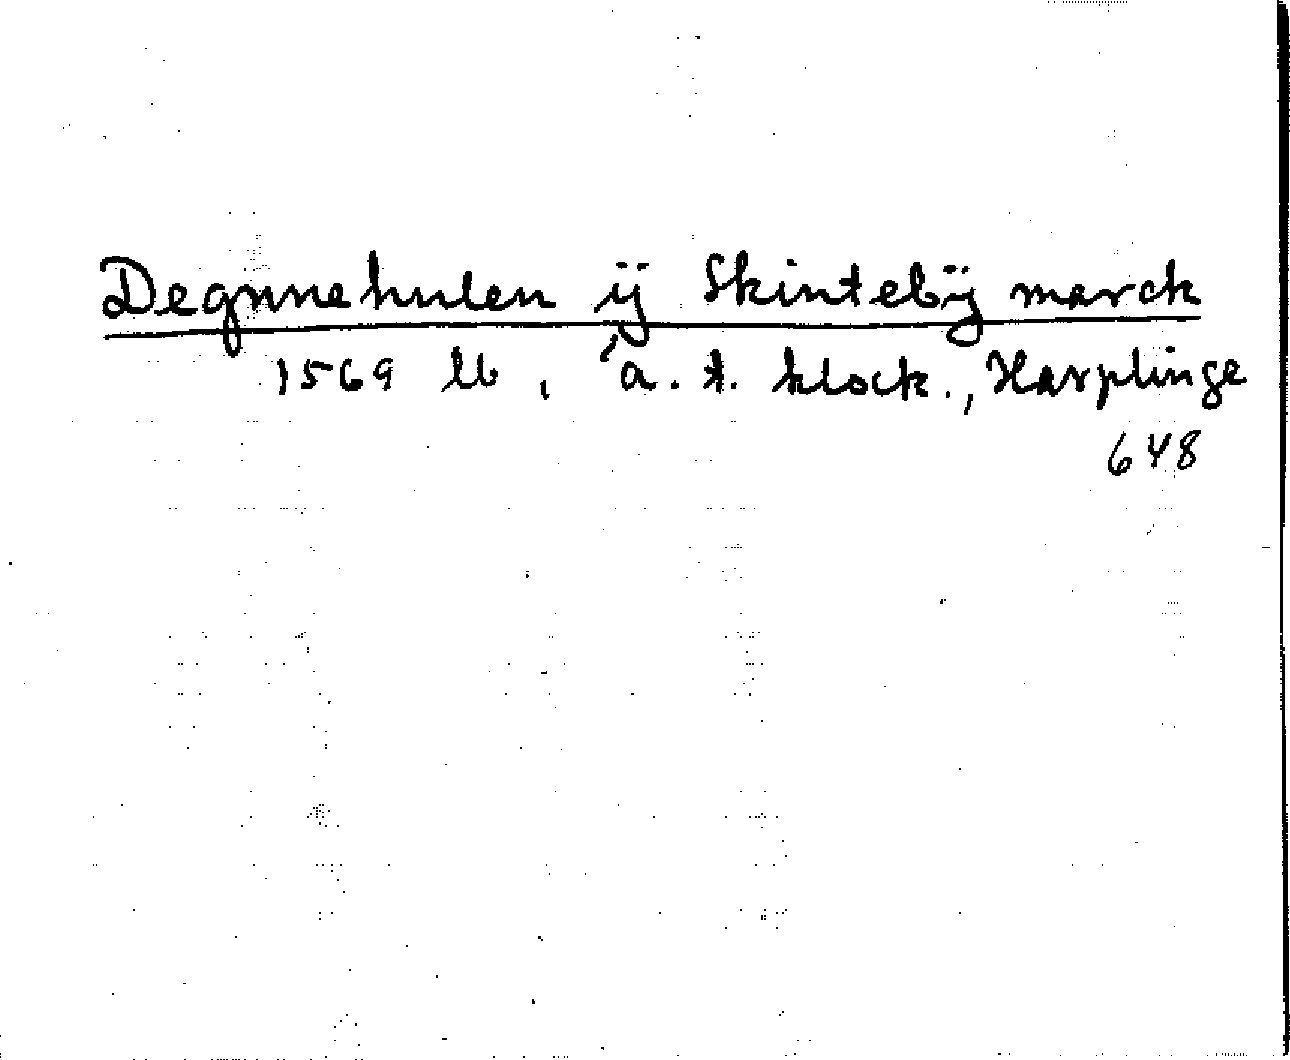 Degnnehulen ij Skintebÿ marck
1569 lb, å. t. klock., Harplinge
648